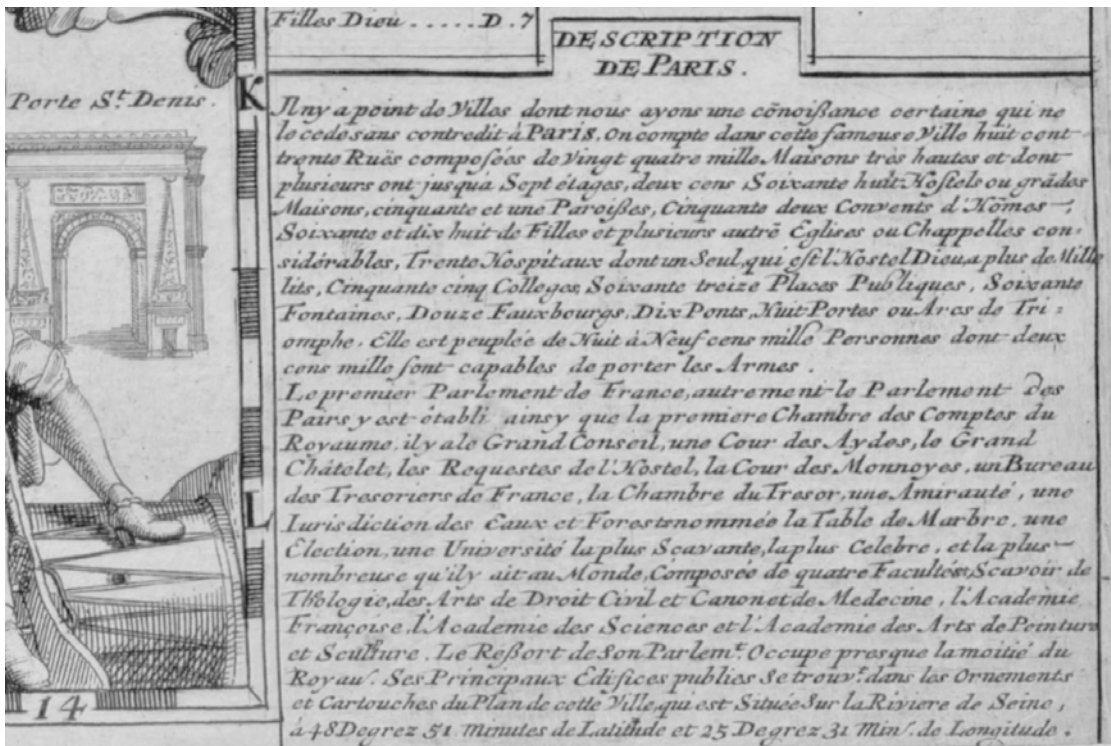 Filles Dieu . . . . . D. 7
DESCRIPTION
DE PARIS.
Porte St. Denis.
K
Il ny a point de Villes dont nous ayons une cõnoißance certaine qui ne
le cede sans contredit à Paris. On compte dans cette fameuse Ville huit cent
trente Ruës composées de Vingt quatre mille Maisons très hautes et dont
plusieurs ont jusqu'à Sept étages, deux cens Soixante huit Hostels ou grãdes
Maisons, cinquante et une Paroißes, Cinquante deux Convents d'Hõmes,
Soixante et dix huit de Filles et plusieurs autrẽ Eglises ou Chappelles con-
sidérables, Trente Hospitaux dont un Seul, qui est l'Hostel Dieu, a plus de Mille
lits, Cinquante cinq Colleges, Soixante treize Places Publiques, Soixante
Fontaines, Douze Fauxbourgs, Dix Ponts, Huit Portes ou Arcs de Tri=
omphe. Elle est peuplée de Huit à Neuf cens mille Personnes dont deux
cens mille sont capables de porter les Armes.
Le premier Parlement de France, autrement le Parlement des
Pairs y est établi ainsy que la premiere Chambre des Comptes du
Royaume, il y a le Grand Conseil, une Cour des Aydes, le Grand
Châtelet, les Requestes de l'Hostel, la Cour des Monnoyes, un Bureau
des Tresoriers de France, la Chambre du Tresor, une Amirauté, une
Iurisdiction des Eaux et Forests nommée la Table de Marbre, une
Election, une Université la plus Scavante, la plus Celebre, et la plus
nombreuse qu'il y ait au Monde, Composée de quatre Facultés, Scavoir de
Thologie, des Arts de Droit Civil et Canon et de Medecine, l'Academie
Françoise, l'Academie des Sciences et l'Academie des Arts de Peinture
et Sculture. Le Reßort de Son Parlemt. Occupe presque la moitié du
Royau. Ses Principaux Edifices publics Se trouvt. dans les Ornements
et Cartouches du Plan de cette Ville qui est Située Sur la Riviere de Seine,
à 48 Degrez 51 minutes de Latitude et 25 Degrez 31 Min. de Longitude.
L
14